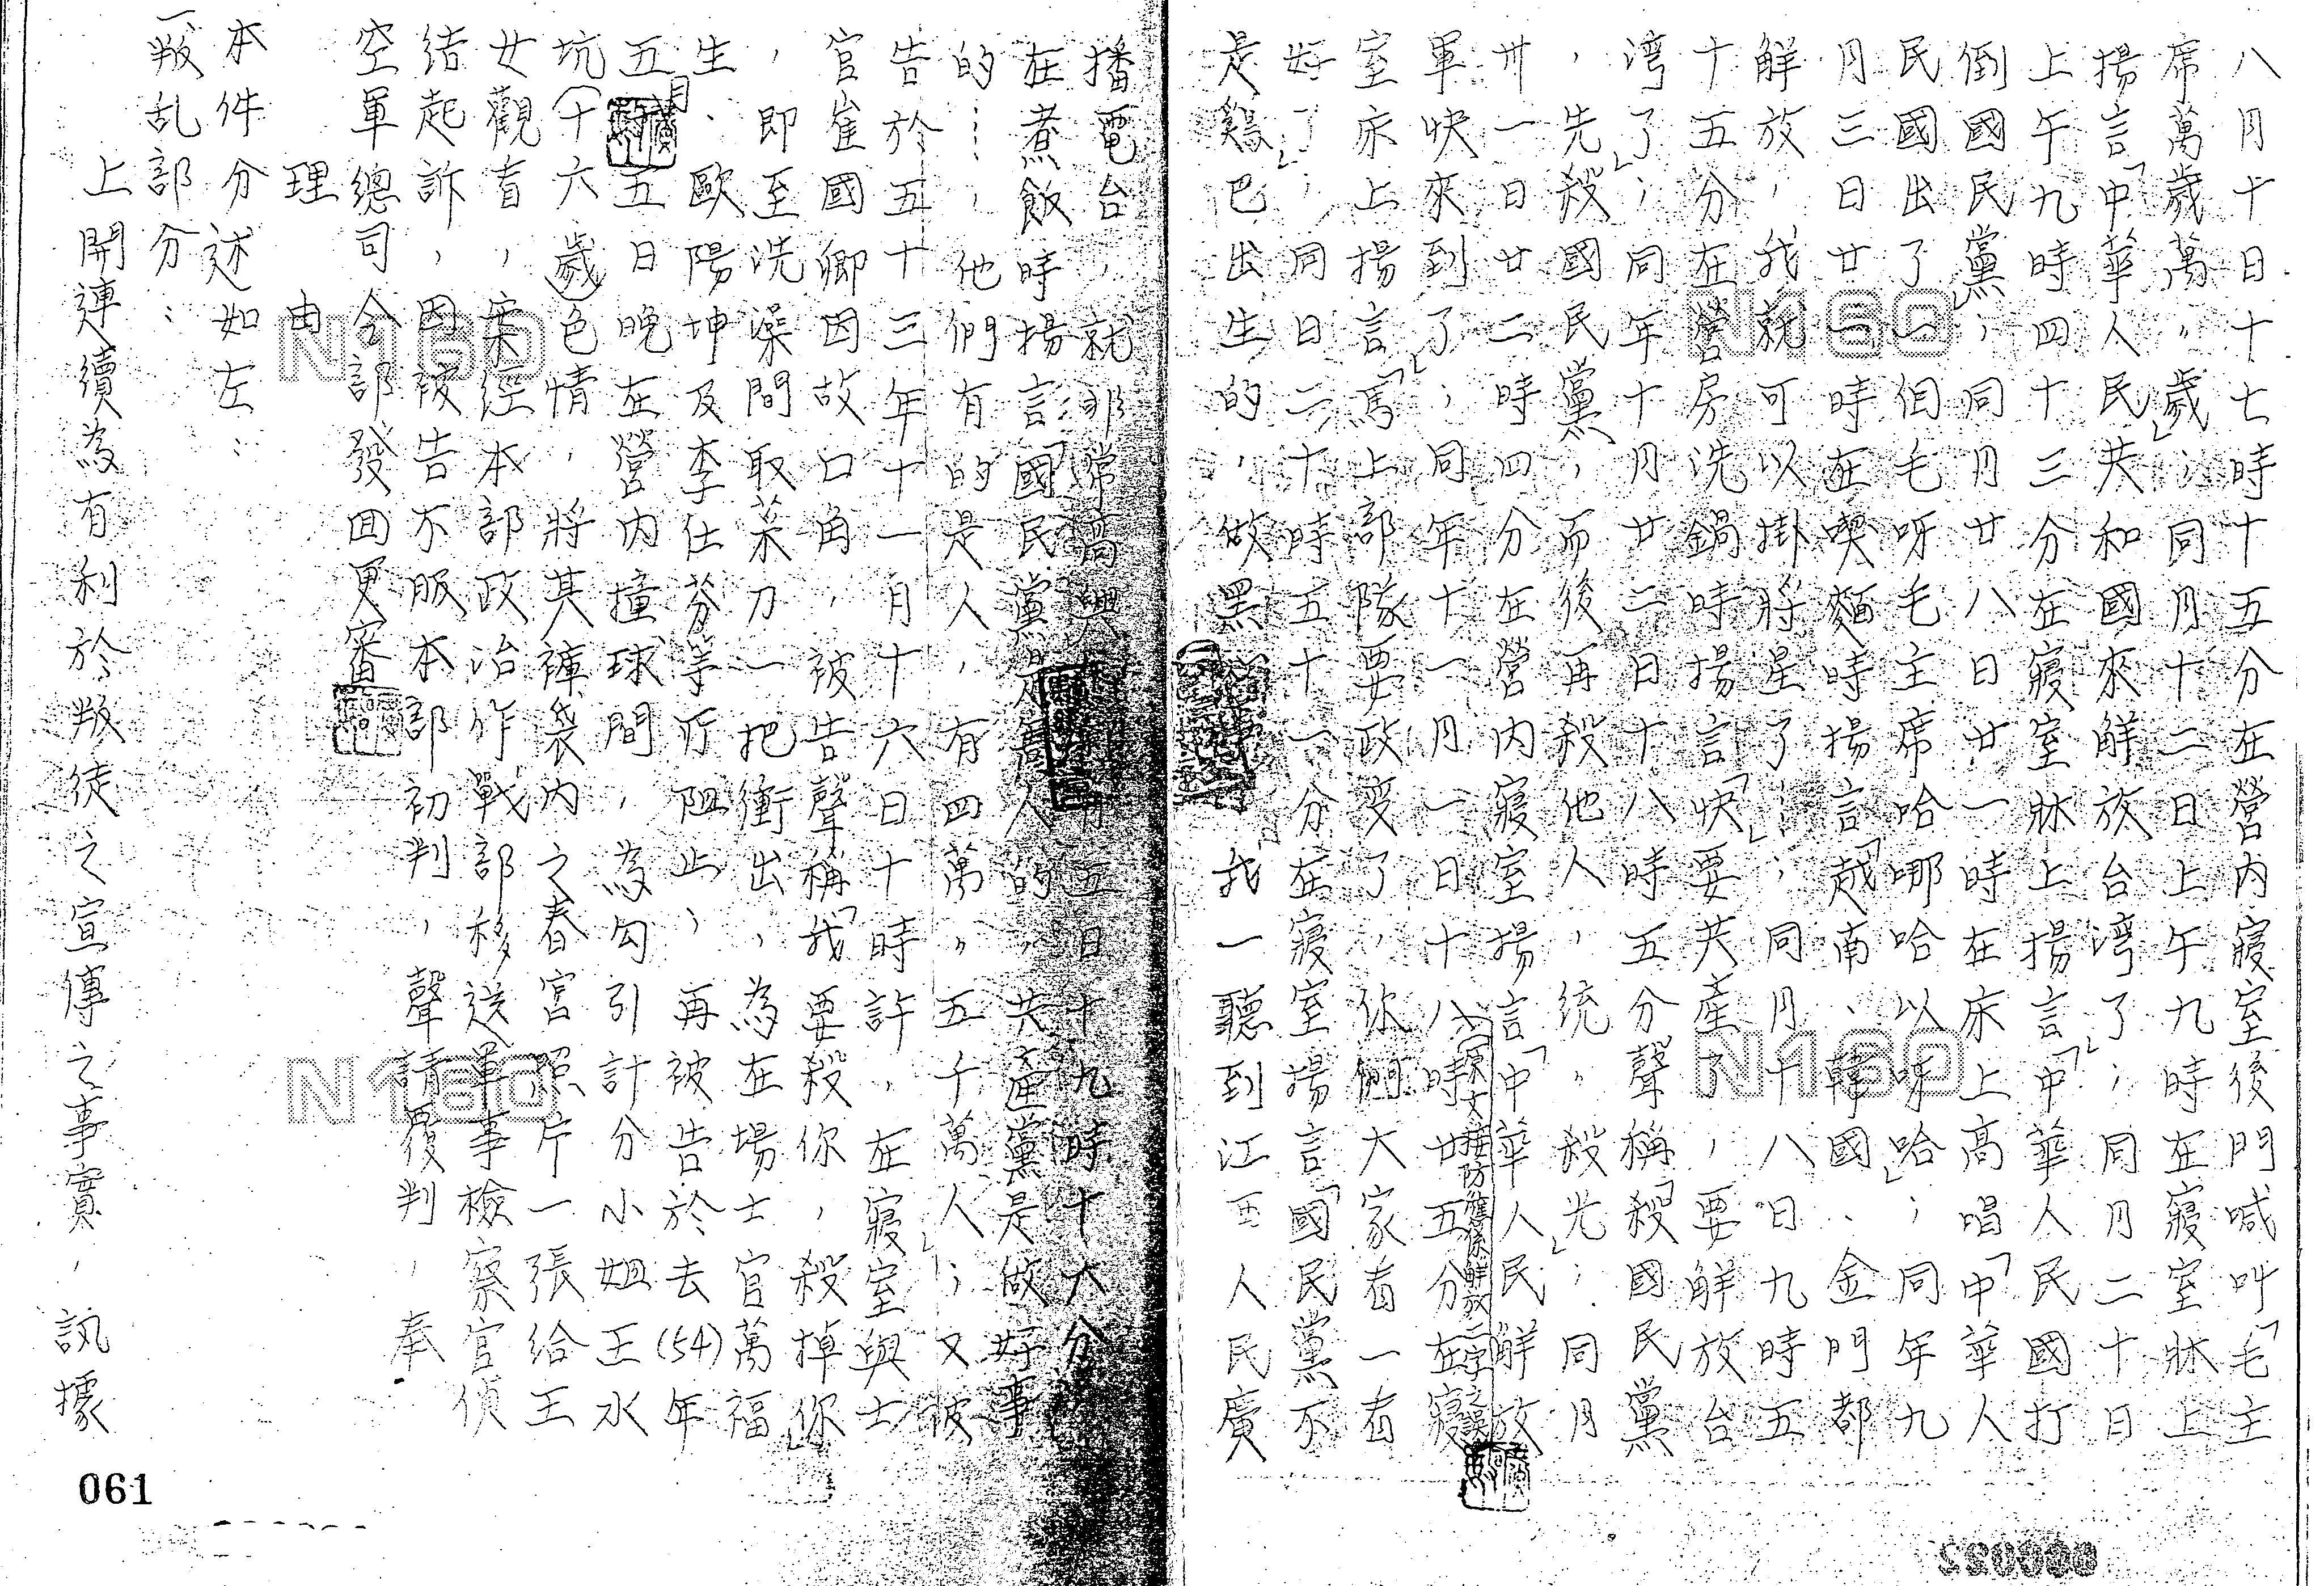 八月十日十七時十五分在營內寢室後門喊叫「毛主
席萬歲萬〃歲」；同月十二日上午九時在寢室牀上
揚言「中華人民共和國來解放台湾了」；同月二十日
上午九時四十三分在寢室牀上揚言「中華人民國打
倒國民黨」；同月廿八日廿一時在床上高唱「中華人
民國出了一個毛呀毛主席哈哪哈以呀哈」；同年九
月三日廿一時在喫麵時揚言「越南、韓國、金門都
解放，我就可以掛將星了」；同月十八日九時五
十五分在營房洗鍋時揚言「快要共產了，要解放台
湾了」；同年十月廿二日十八時五分聲稱「殺國民黨
，先殺國民黨，而後再殺他人，統〃殺光」；同月
卅一日廿二時四分在營內寢室揚言「中華人民解放
軍快來到了」；同年十一月一日十八時廿五分在寢
室床上揚言「馬上部隊要政变了，你們大家看一看
好了」；同日二十時五十一分在寢室揚言「國民黨不
是鷄巴出生的，做黑我一聽到江西人民廣
播電台，就非常高興 五日十九時十六分
在煮飯時揚言「國民黨是害人的，共產黨是做好事
的……，他們有的是人，有四萬〃五千萬人」；又被
告於五十三年十一月十六日十時許，在寢室與士
官崔國卿因故口角，被告聲稱「我要殺你，殺掉你」
，即至洗澡間取菜刀一把衝出，為在場士官萬福
生．歐陽坤及李仕芬等所阻止，再被告於去(54)年
五月五日晚在營內撞球間，為勾引計分小姐王水
坑（十六歲）色情，將其褲袋內之春宮照片一張給王
女觀看，案經本部政治作戰部移送軍事檢察官偵
結起訴，因被告不服本部初判，聲請覆判，奉
空軍總司令部發回更審
理由
本件分述如左：
一叛乱部分：
上開連續為有利於叛徒之宣傳之事實，訊據
061